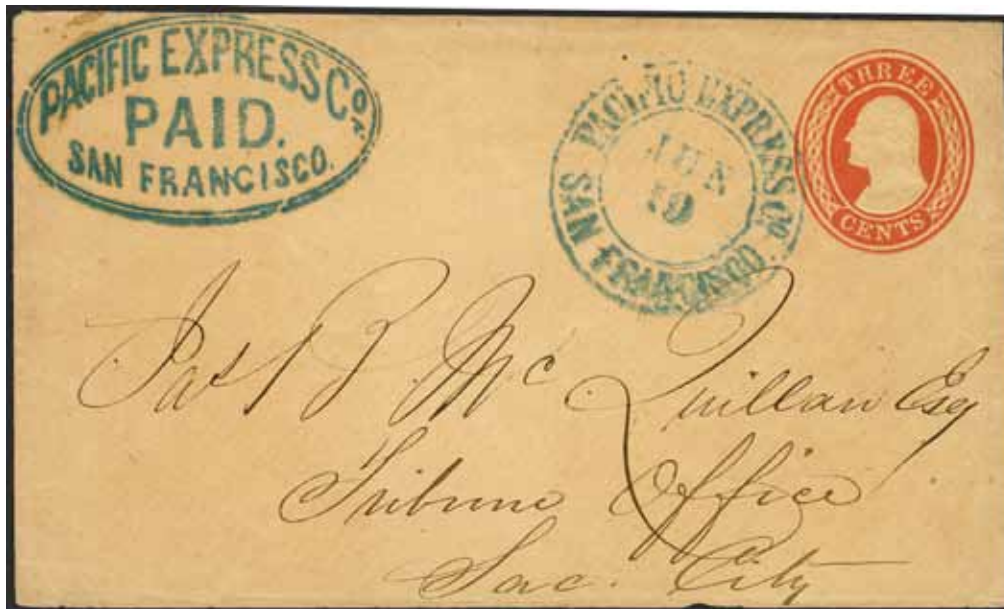 PACIFIC EXPRESS Co.
PAID.
SAN FRANCISCO.
PACIFIC EXPRESS Co.
JUN
19
SAN FRANCISCO
THREE
CENTS
Jas B McQuillan Esq
Tribune Office
Sac. City